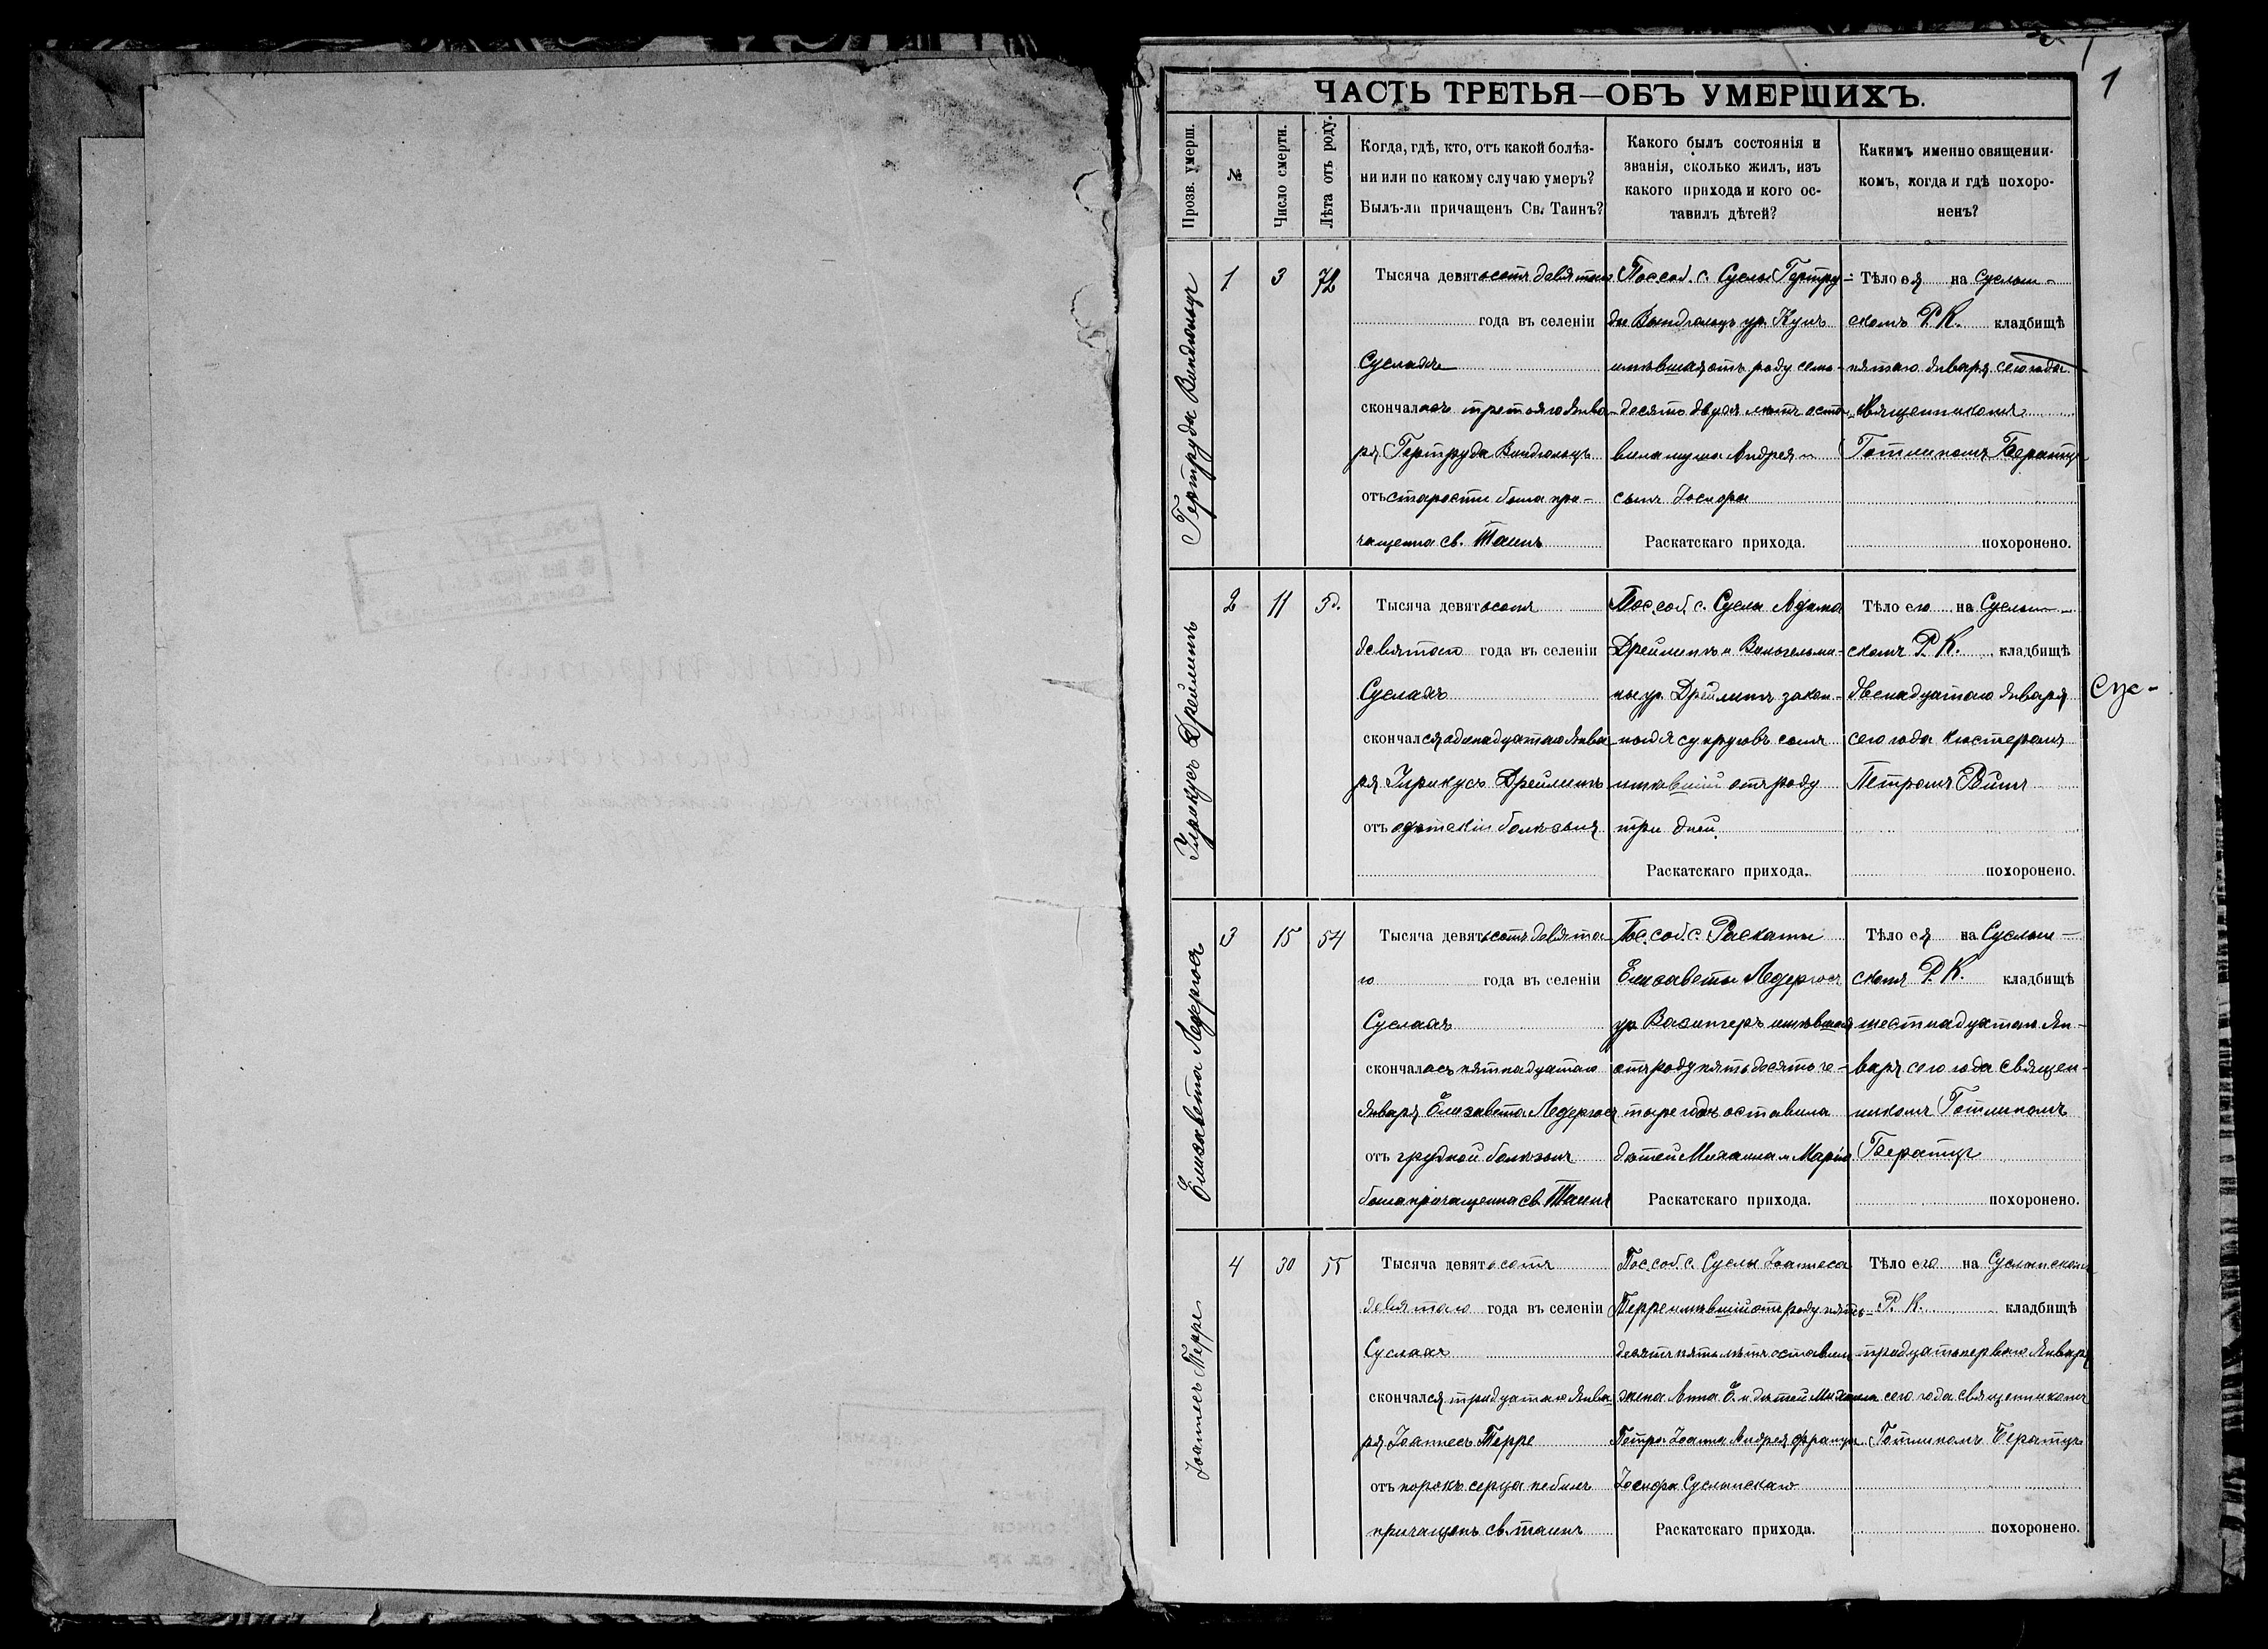 1
ЧАСТЬ ТРЕТЬЯ—ОБЪ УМЕРШИХЪ.
Прозв. умерш.
№
Число смерти.
Лѣта отъ роду.
Когда, гдѣ, кто, отъ какой болѣз-
ни или по какому случаю умеръ?
Былъ-ли причащенъ Св. Таинъ?
Какого былъ состоянія и
званія, сколько жилъ, изъ
какого прихода и кого ос-
тавилъ дѣтей?
Какимъ именно священни-
комъ, когда и гдѣ похоро-
ненъ?
Гертруда Виндгольцъ
1
3
72
Тысяча девятьсотъ девятаго
года въ селеніи
Суслахъ
скончалась третьяго Янва-
ря Гертруда Виндгольцъ
отъ старости была при-
чащенна св. Таинъ
Пос. соб. с. Суслы Гертру-
да Виндгольцъ ур. Кунъ
имѣвшая отъ роду семь-
десять двухъ лѣтъ оста-
вила мужа Андрея и
сынъ Іосифа
Раскатскаго прихода.
Тѣло ея на Суслын-
скомъ Р. К. кладбищѣ
пятаго Января сего года
священникомъ
Готлипомъ Бератцъ
похоронено.
Дрейлингъ
2
11
3д.
Тысяча девятьсотъ
девятаго года въ селеніи
Суслахъ
скончался одинадцатаго Янва-
ря Дрейлингъ
отъ дѣтскій болѣзни
Пос. соб. с. Суслы Адама
Дрейлингъ и Вильгельми-
ны ур. Дрейлингъ закон-
ныхъ супруговъ сынъ
имѣвшій отъ роду
три дней.
Раскатскаго прихода.
Тѣло его на Суслын-
скомъ Р. К. кладбищѣ
двенадцатаго Января
сего года кистеромъ
Петромъ
похоронено.
Сус-
Елизавета Ледергосъ
3
15
54
Тысяча девятьсотъ девята-
го года въ селеніи
Суслахъ
скончалась пятнадцатаго
Января Елизавета Ледергосъ
отъ грудной болѣзни
была причащенна св. Таинъ
Пос. соб. с. Раскаты
Елизаветы Ледергосъ
ур. Вазингеръ имѣвшая
отъ роду пятьдесять че-
тыре годъ оставила
дѣтей Михаила и Марію
Раскатскаго прихода.
Тѣло ея на Суслын-
скомъ Р. К. кладбищѣ
шестнадцатаго Ян-
варя сего года священ-
никомъ Готлипомъ
Бератцъ
похоронено.
Іоаннесъ Терре
4
30
55
Тысяча девятьсотъ
девятаго года въ селеніи
Суслахъ
скончался тридцатаго Янва-
ря Іоаннесъ Терре
отъ порокъ серца не былъ
причащенъ св. таинъ
Пос. соб. с. Суслы Іоаннеса
Терре имѣвшій отъ роду пять-
десятъ пять лѣтъ оставилъ
жена Анна Е. и дѣтей Михаила
Петра Іоанна Андрея Франца
Іосифа Суслынскаго
Раскатскаго прихода.
Тѣло его на Суслынскомъ
Р. К. кладбищѣ
тридцать перваго Января
сего года священникомъ
Готлипомъ Бератцъ
похоронено.